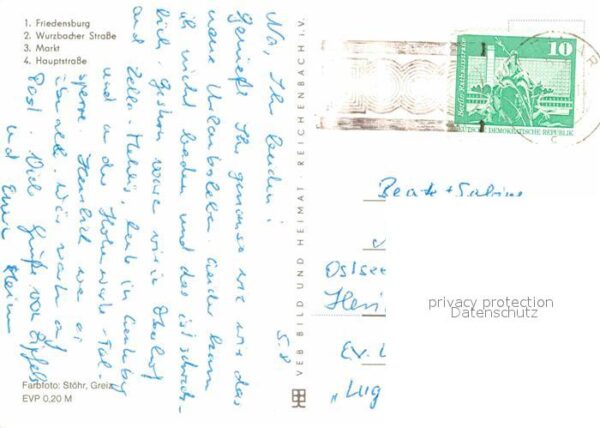 1. Friedensburg
2. Wurzbacher Straße
3. Markt
4. Hauptstraße
5.8
Na, Ihr beiden!
Genießt Ihr genauso wie wir das
neue Urlaubsleben. Leider kann
ich nicht baden und das ist schreck-
lich. Gestern waren wir in Oberhof
und Zella-Mehlis, heute in
und an der Hohenwarte-Tal-
sperre. Herrlich war es
überall. Wir
Post. Viele Grüße von
und Eurer
Farbfoto: Stöhr, Greiz
EVP 0,20 M
VEB BILD UND HEIMAT · REICHENBACH i. V.
10
Berlin, Rathausstraße
DEUTSCHE DEMOKRATISCHE REPUBLIK
Beate + Sabine
Ostsee
Ev. L
"Lug
privacy protection
Datenschutz